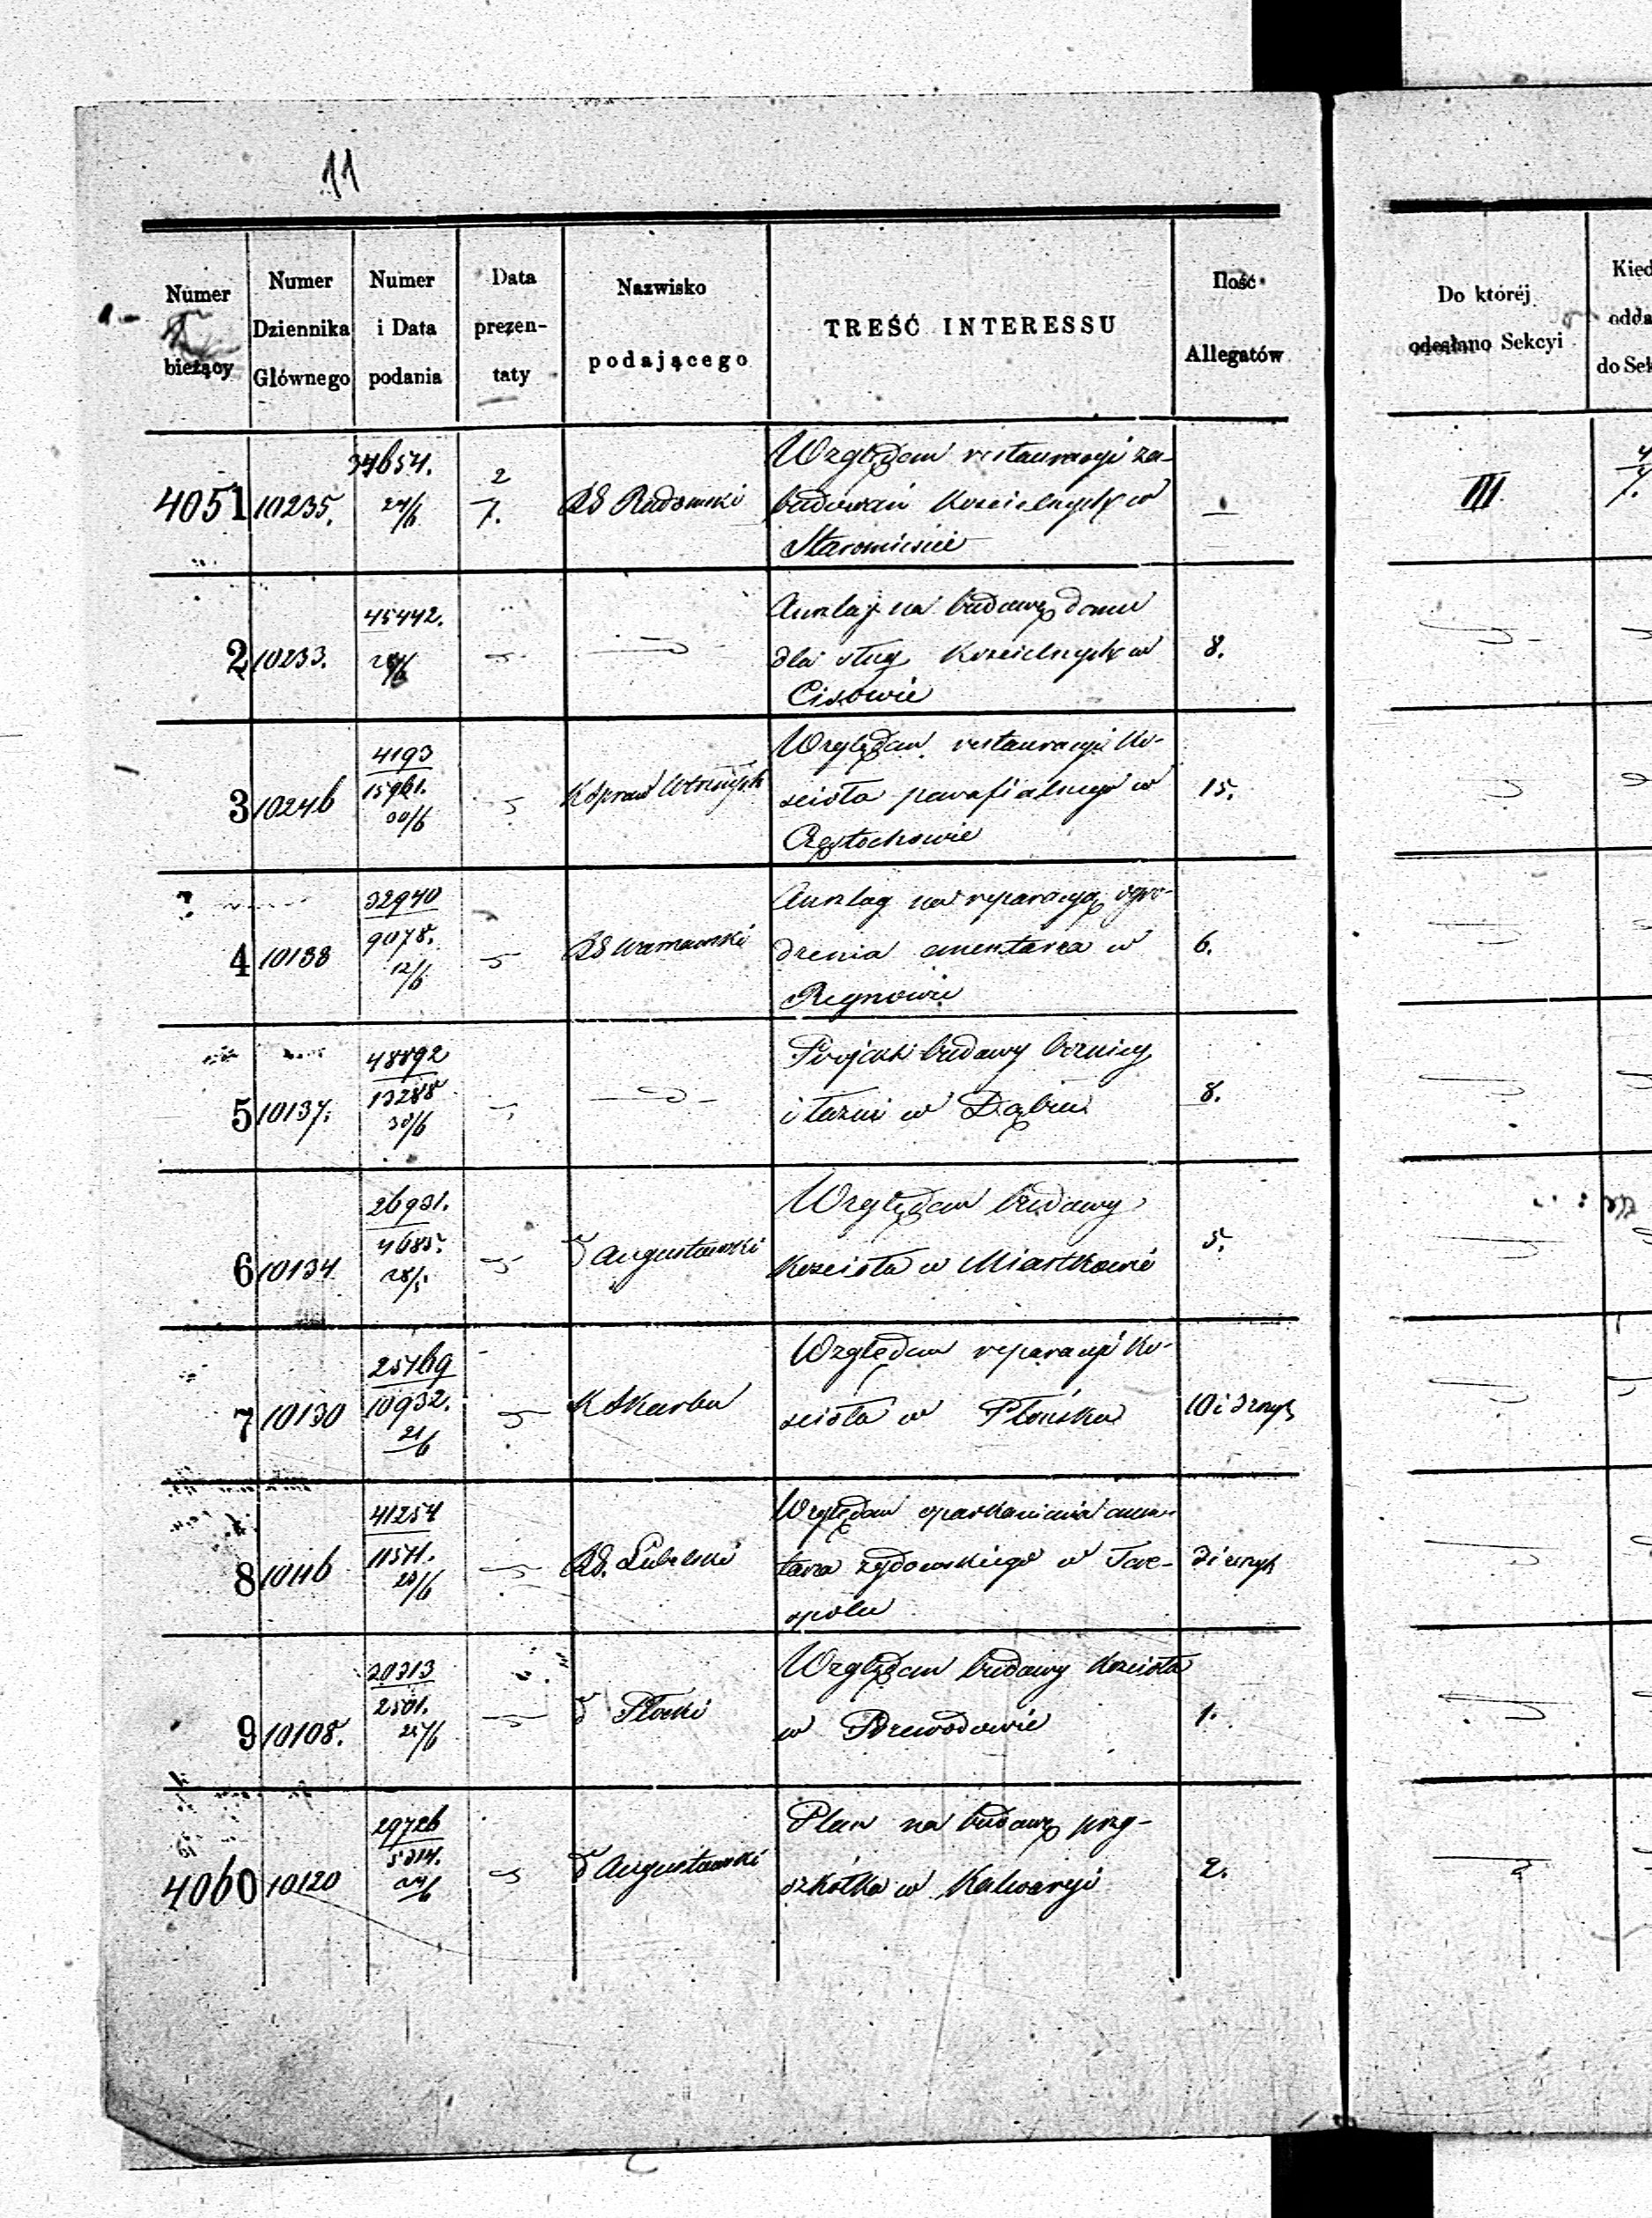 11
Numer bieżący | Numer Dziennika Głównego | Numer i Data podania | Data prezen- taty | Nazwisko podającego | TREŚĆ INTERESSU | Ilość Allegatów | Do któréj odesłano Sekcyi
4051 | 10235. | 34654. 24/6 | 2 7. | RG Radomski | Względem restauracyi za-
budowań Kościelnych w
Staromieście | — | III.
2 | 10233. | 45442. | Anszlag na budowę domu
dla sług Kościelnych w
Cisowie | 8.
3 | 10246 | 4193 15961. 30/6 | Względem restauracyi Ko-
ścioła parafialnego w
Częstochowie | 15.
4 | 10138 | 32940 9078. 12/6 | RG Warszawski | Anszlag na reparacyą ogro-
dzenia cmentarza w
Regnowie | 6.
5 | 10137. | 48892 13288 30/6 | Projekt budowy bóżnicy
i łaźni w Dąbiu | 8.
6 | 10134 | 26931. 4685. | Augustowski | Względem budowy
Kościoła w Miastkowie | 5.
7 | 10130 | 25469 10932. 21/6 | K Skarbu | Względem reparacyi Ko-
ścioła w Płońsku | 10 i
8 | 10116 | 41254 11571. 20/6 | RG. Lubelski | Względem oparkanienia cmen-
tarza żydowskiego w Tere-
spolu
9 | 10108. | 20313 2501. 25/6 | Płocki | Względem budowy Kościoła
w Przewodowie | 1.
4060 | 10120 | 29726 5314. 24/6 | Augustowski | Plan na budowę przy-
szkółka w Kalwaryi | 2.